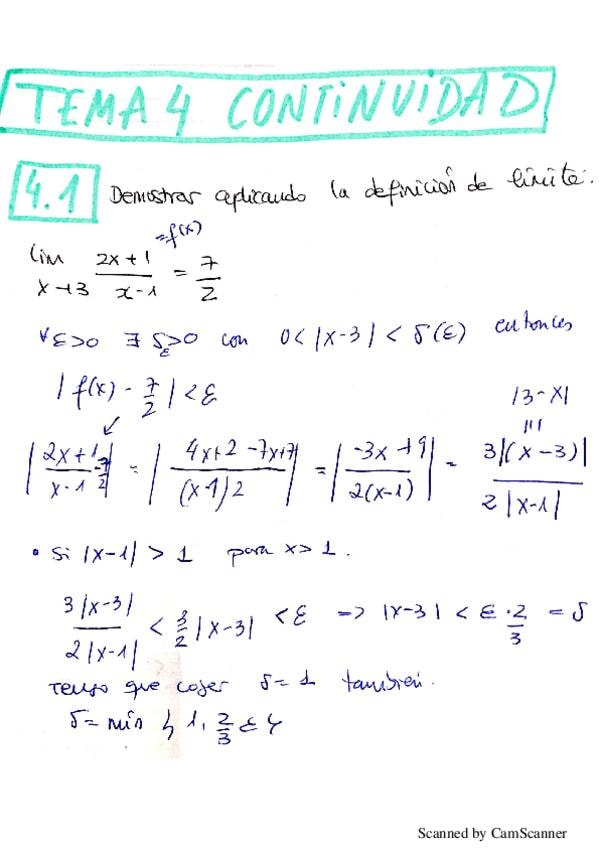 TEMA 4 CONTINUIDAD
4.1 Demostrar aplicando la definición de límite:
lim x→3 (2x+1)/(x-1) = 7/2
=f(x)
∀ε>0 ∃ δε>0 con 0<|x-3|<δ(ε) entonces
|f(x) - 7/2| < ε
|3-x|
|(2x+1)/(x-1) - 7/2| = |(4x+2-7x+7)/((x-1)2)| = |(-3x+9)/(2(x-1))| = 3|(x-3)|/(2|x-1|)
• Si |x-1| > 1 para x>1.
3|x-3|/(2|x-1|) < 3/2 |x-3| < ε => |x-3| < ε·2/3 = δ
Tengo que cojer δ=1 también.
δ = mín { 1, 2/3 ε }
Scanned by CamScanner